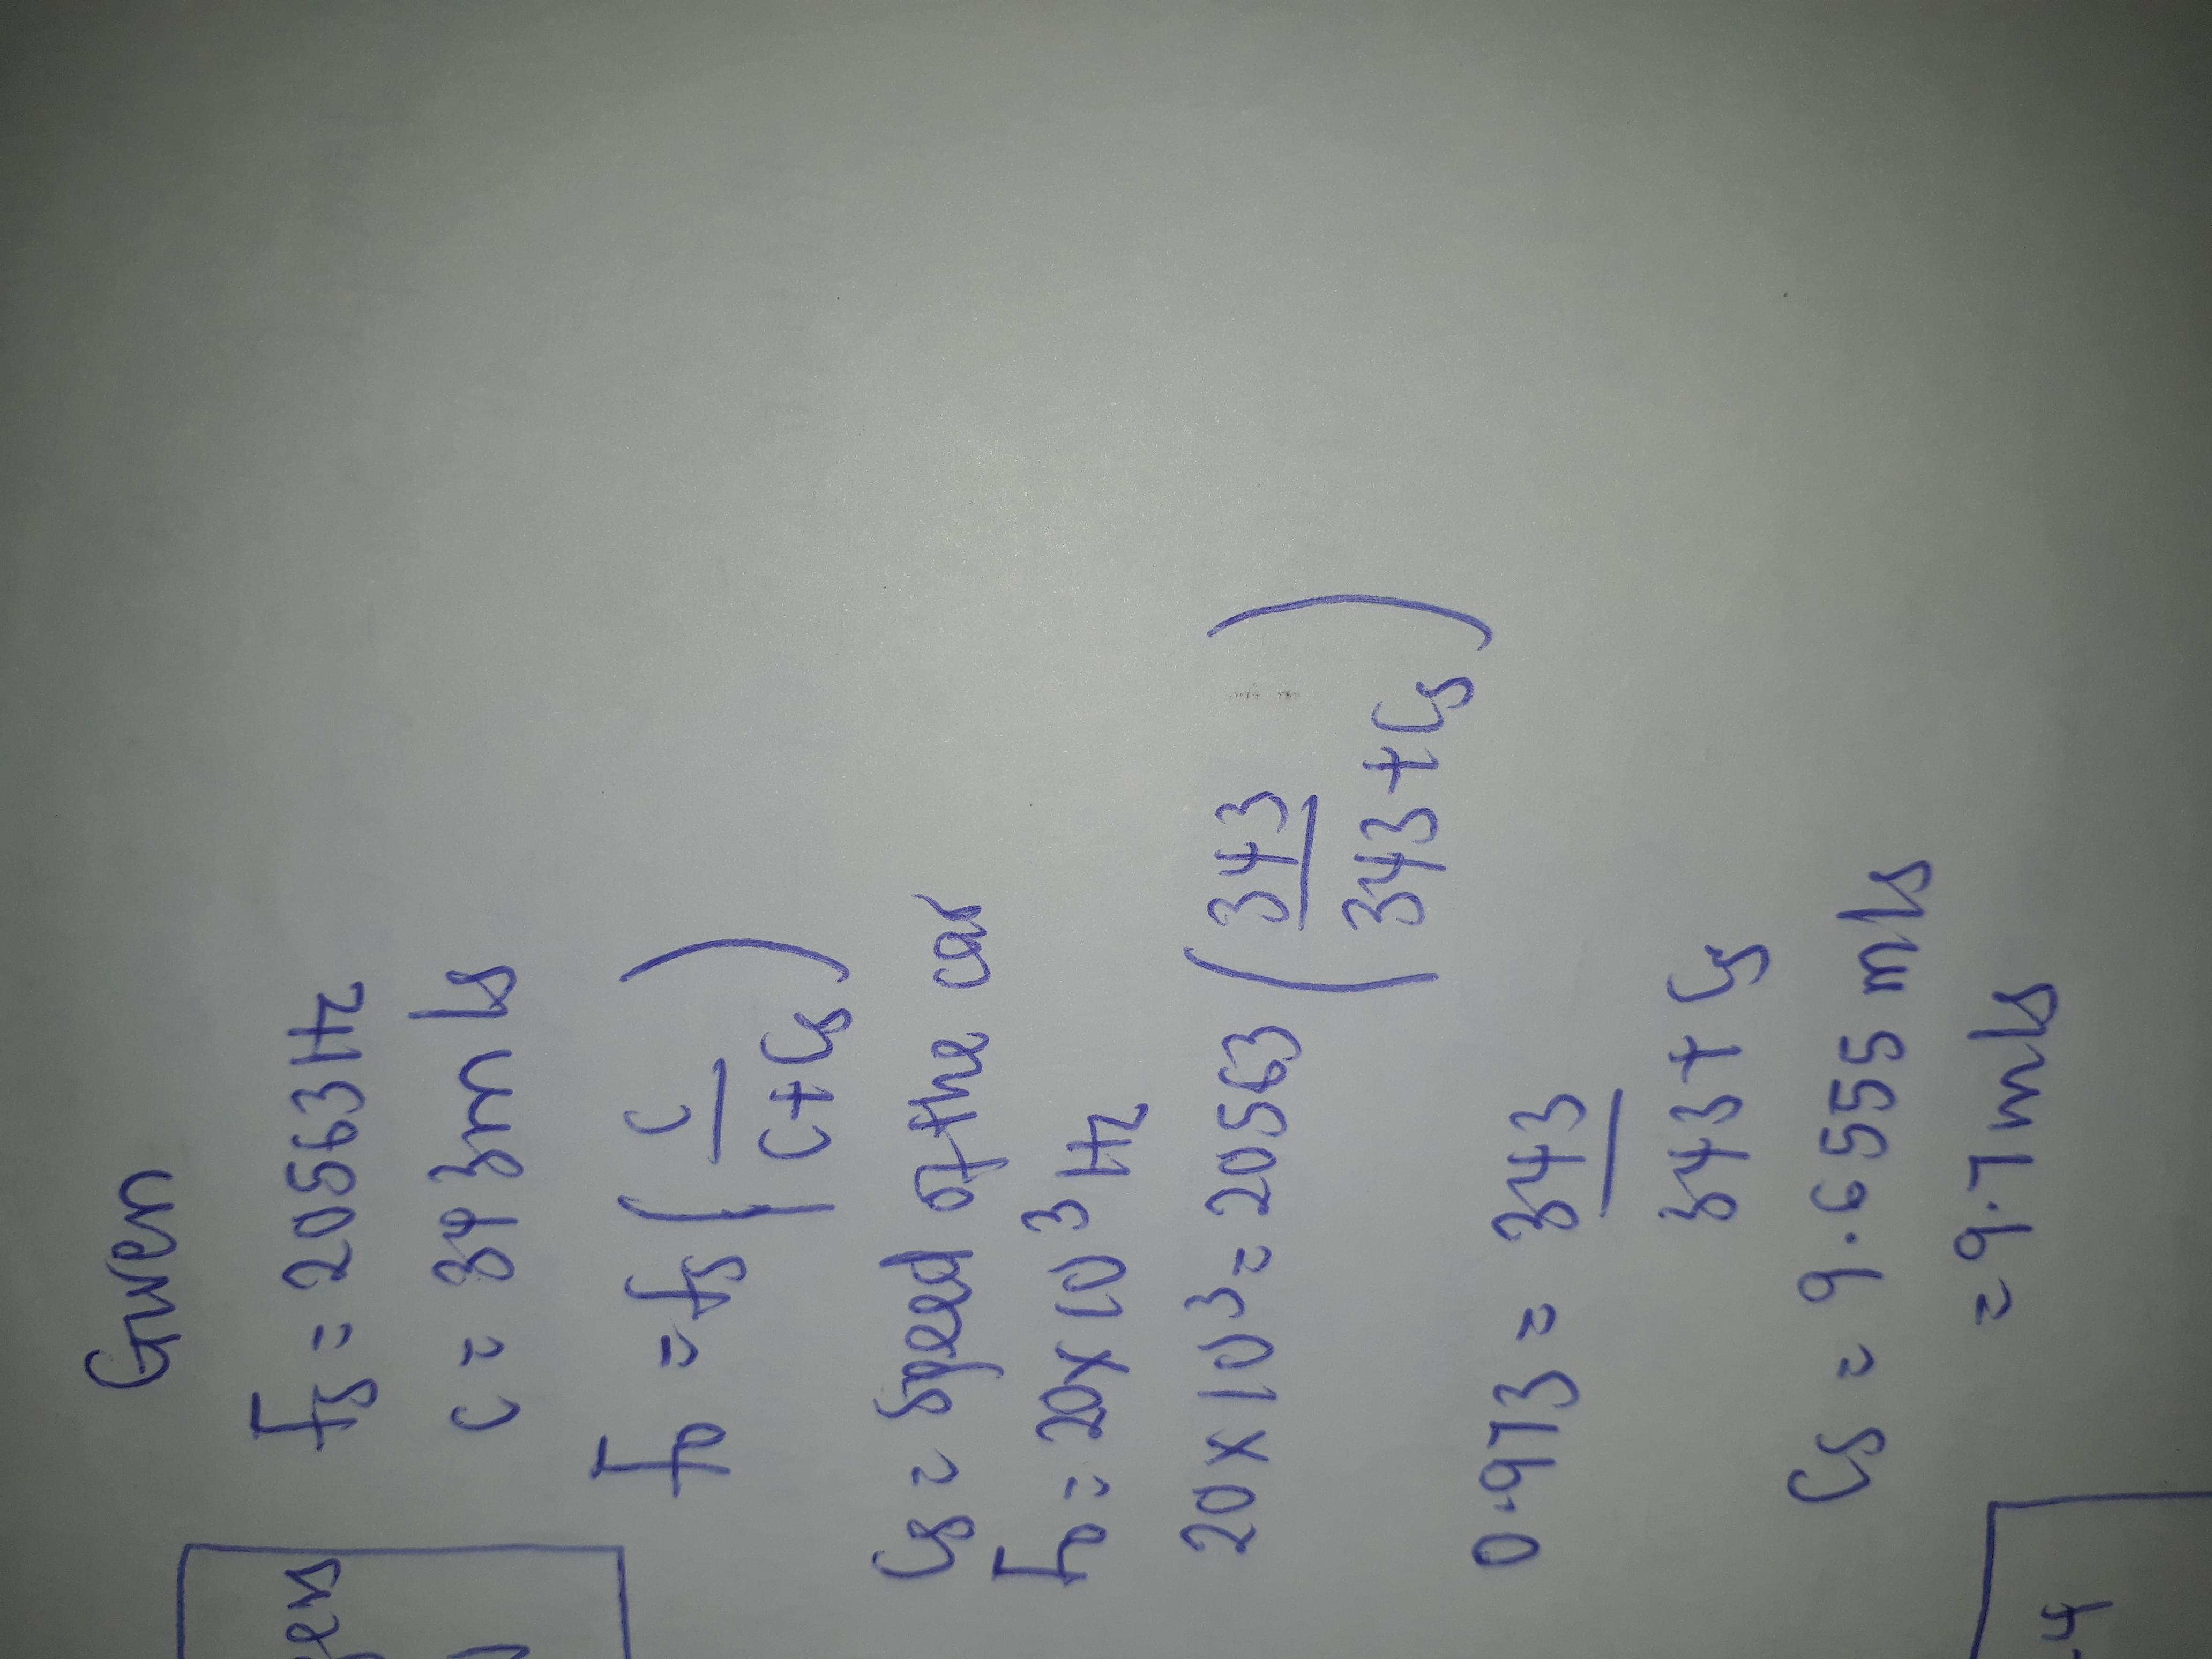 Given
fs = 20563 Hz
c = 343 m/s
fo = fs ( c / c + Cs )
Cs = speed of the car
fo = 20 x 10³ Hz
20 x 10³ = 20563 ( 343 / 343 + Cs )
0.973 = 343 / 343 + Cs
Cs = 9.6555 m/s
= 9.7 m/s